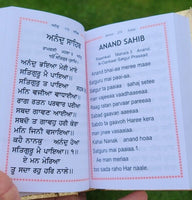 ਅਨੰਦੁ ਸਾਹਿਬ
ਅਨੰਦੁ ਭਇਆ ਮੇਰੀ ਮਾਏ
ਸਤਿਗੁਰੂ ਮੈ ਪਾਇਆ॥
ਸਤਿਗੁਰੁ ਤ ਪਾਇਆ ਸਹਜ ਸੇਤੀ
ਮਨਿ ਵਜੀਆ ਵਾਧਾਈਆ॥
ਰਾਗ ਰਤਨ ਪਰਵਾਰ ਪਰੀਆ
ਸਬਦ ਗਾਵਣ ਆਈਆ॥
ਸਬਦੋ ਤ ਗਾਵਹੁ ਹਰੀ ਕੇਰਾ
ਮਨਿ ਜਿਨੀ ਵਸਾਇਆ॥
ਕਹੈ ਨਾਨਕੁ ਅਨੰਦੁ ਹੋਆ
ਸਤਿਗੁਰੂ ਮੈ ਪਾਇਆ॥੧॥
ਏ ਮਨ ਮੇਰਿਆ
ਤੂ ਸਦਾ ਰਹੁ ਹਰਿ ਨਾਲੇ॥
ANAND SAHIB
Raamkali Mahala 3 Anand
Ik Oankaar Satgur Prasad
Anand bhai-aa meree maae
Satguru mai paaiaa.
Satgur ta paaiaa sahaj saitee
man vajee-aa
Raag ratan parvaar
sabad gaavan aaeeaa.
Sabdo ta gaavoh Haree kera
man jinee vasaaiaa.
Kahai Nanak anand hoaa
Satguru mai paaiaa. 1
Ae man meriaa
too sadaa raho Har naale.